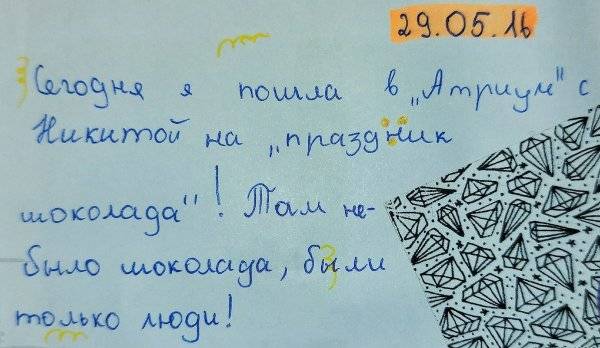 29.05.16
Сегодня я пошла в „Атриум" с
Никитой на „праздник
шоколада"! Там не-
было шоколада, были
только люди!